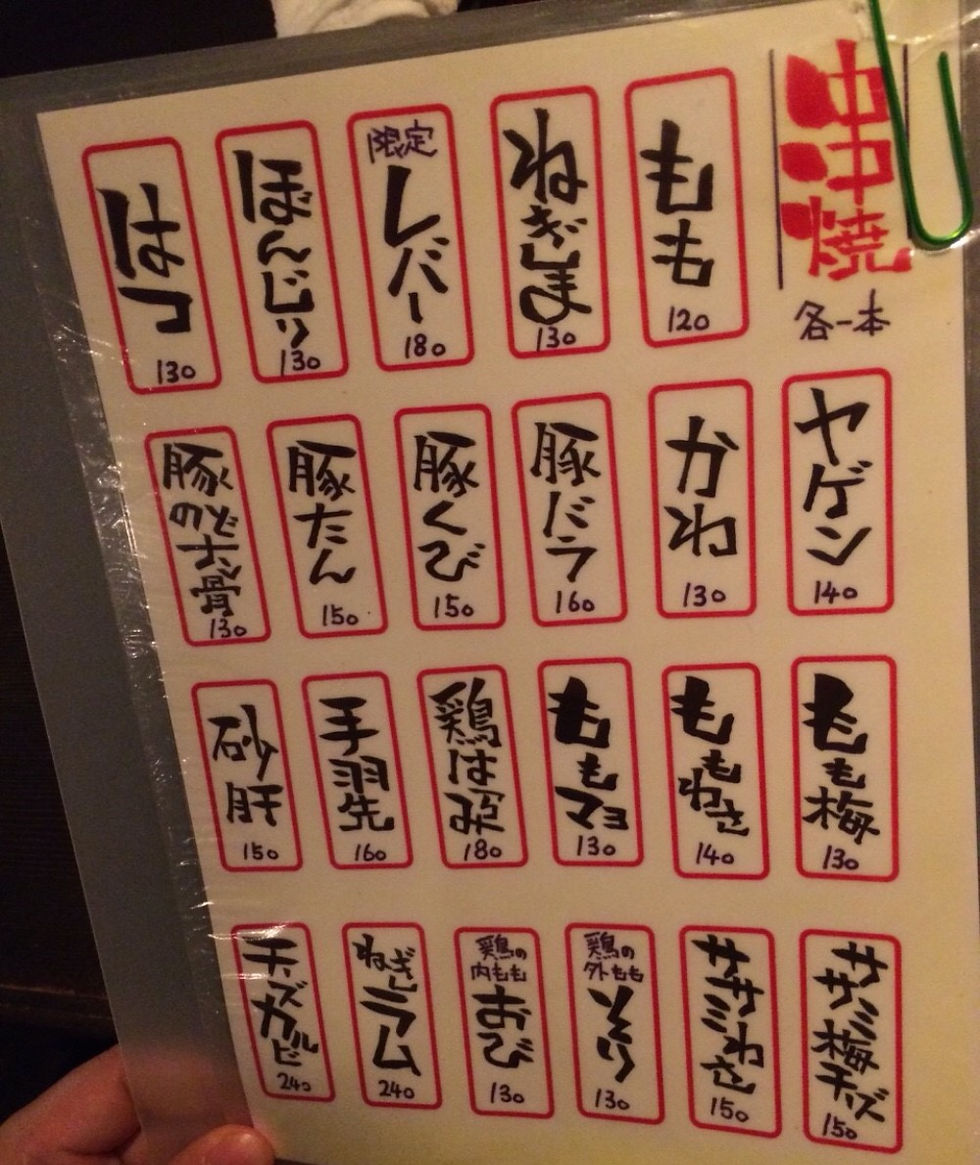 串焼
各一本
もも
120
ねぎま
130
限定
レバー
180
ぼんじり
130
はつ
130
ヤゲン
140
かわ
130
豚バラ
160
豚くび
150
豚たん
150
豚のどナン骨
130
もも梅
130
ももわさ
140
ももマヨ
130
180
手羽先
160
砂肝
150
ササミ梅チーズ
150
ササミわさ
150
鶏の
外もも
そり
130
鶏の
内もも
おび
130
ねぎラム
240
チーズカルビ
240